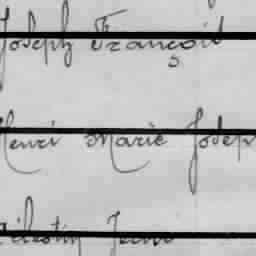 Joseph François
Henri Marie Joseph
Célestin